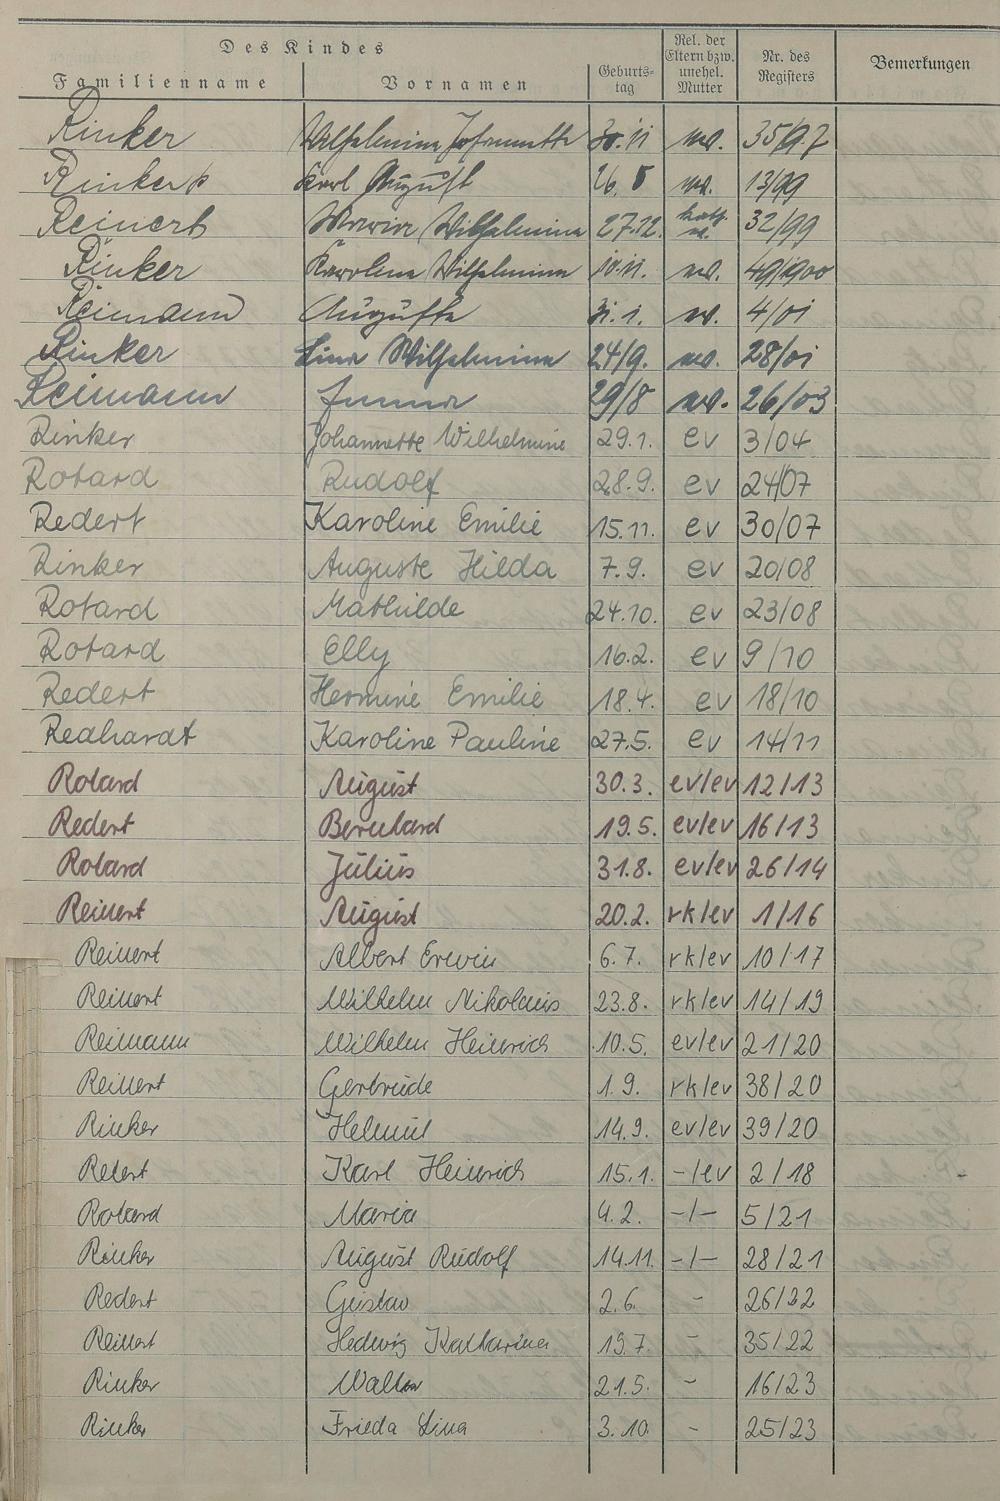 Des Kindes
Familienname Vornamen Geburts-tag Rel. der Eltern bzw. unehel. Mutter Nr. des Registers Bemerkungen
Rinker Wilhelmine Johannette 30.11 ev. 35/97
Rinker Karl August 26.5 ev. 13/99
Reinert Wilhelmine 27.12. kath. ev. 32/99
Rinker Karoline Wilhelmine 10.11. ev. 49/900
Reimann Auguste 31.1. ev. 4/01
Rinker Lina Wilhelmine 24/9. ev. 28/01
Reimann Emma 29/8 ev. 26/03
Rinker Johannette Wilhelmine 29.1. ev 3/04
Rotard Rudolf 28.9. ev 24/07
Redert Karoline Emilie 15.11. ev 30/07
Rinker Auguste Hilda 7.9. ev 20/08
Rotard Mathilde 24.10. ev 23/08
Rotard Elly 16.2. ev 9/10
Redert Hermine Emilie 18.4. ev 18/10
Redhardt Karoline Pauline 27.5. ev 14/11
Rotard August 30.3. ev/ev 12/13
Redert Bernhard 19.5. ev/ev 16/13
Rotard Julius 31.8. ev/ev 26/14
Reinert August 20.2. rk/ev 1/16
Reinert Albert Erwin 6.7. rk/ev 10/17
Reinert Wilhelm Nikolaus 23.8. rk/ev 14/19
Reimann Wilhelm Heinrich 10.5. ev/ev 21/20
Reinert Gertrude 1.9. rk/ev 38/20
Rinker Helmut 14.9. ev/ev 39/20
Retert Karl Heinrich 15.1. -/ev 2/18 -
Rotard Maria 4.2. -/- 5/21
Rinker August Rudolf 14.11. -/- 28/21
Redert Gustav 2.6. - 26/22
Reinert Hedwig Katharina 19.7. - 35/22
Rinker Walter 21.5. - 16/23
Rinker Frieda Lina 3.10. - 25/23